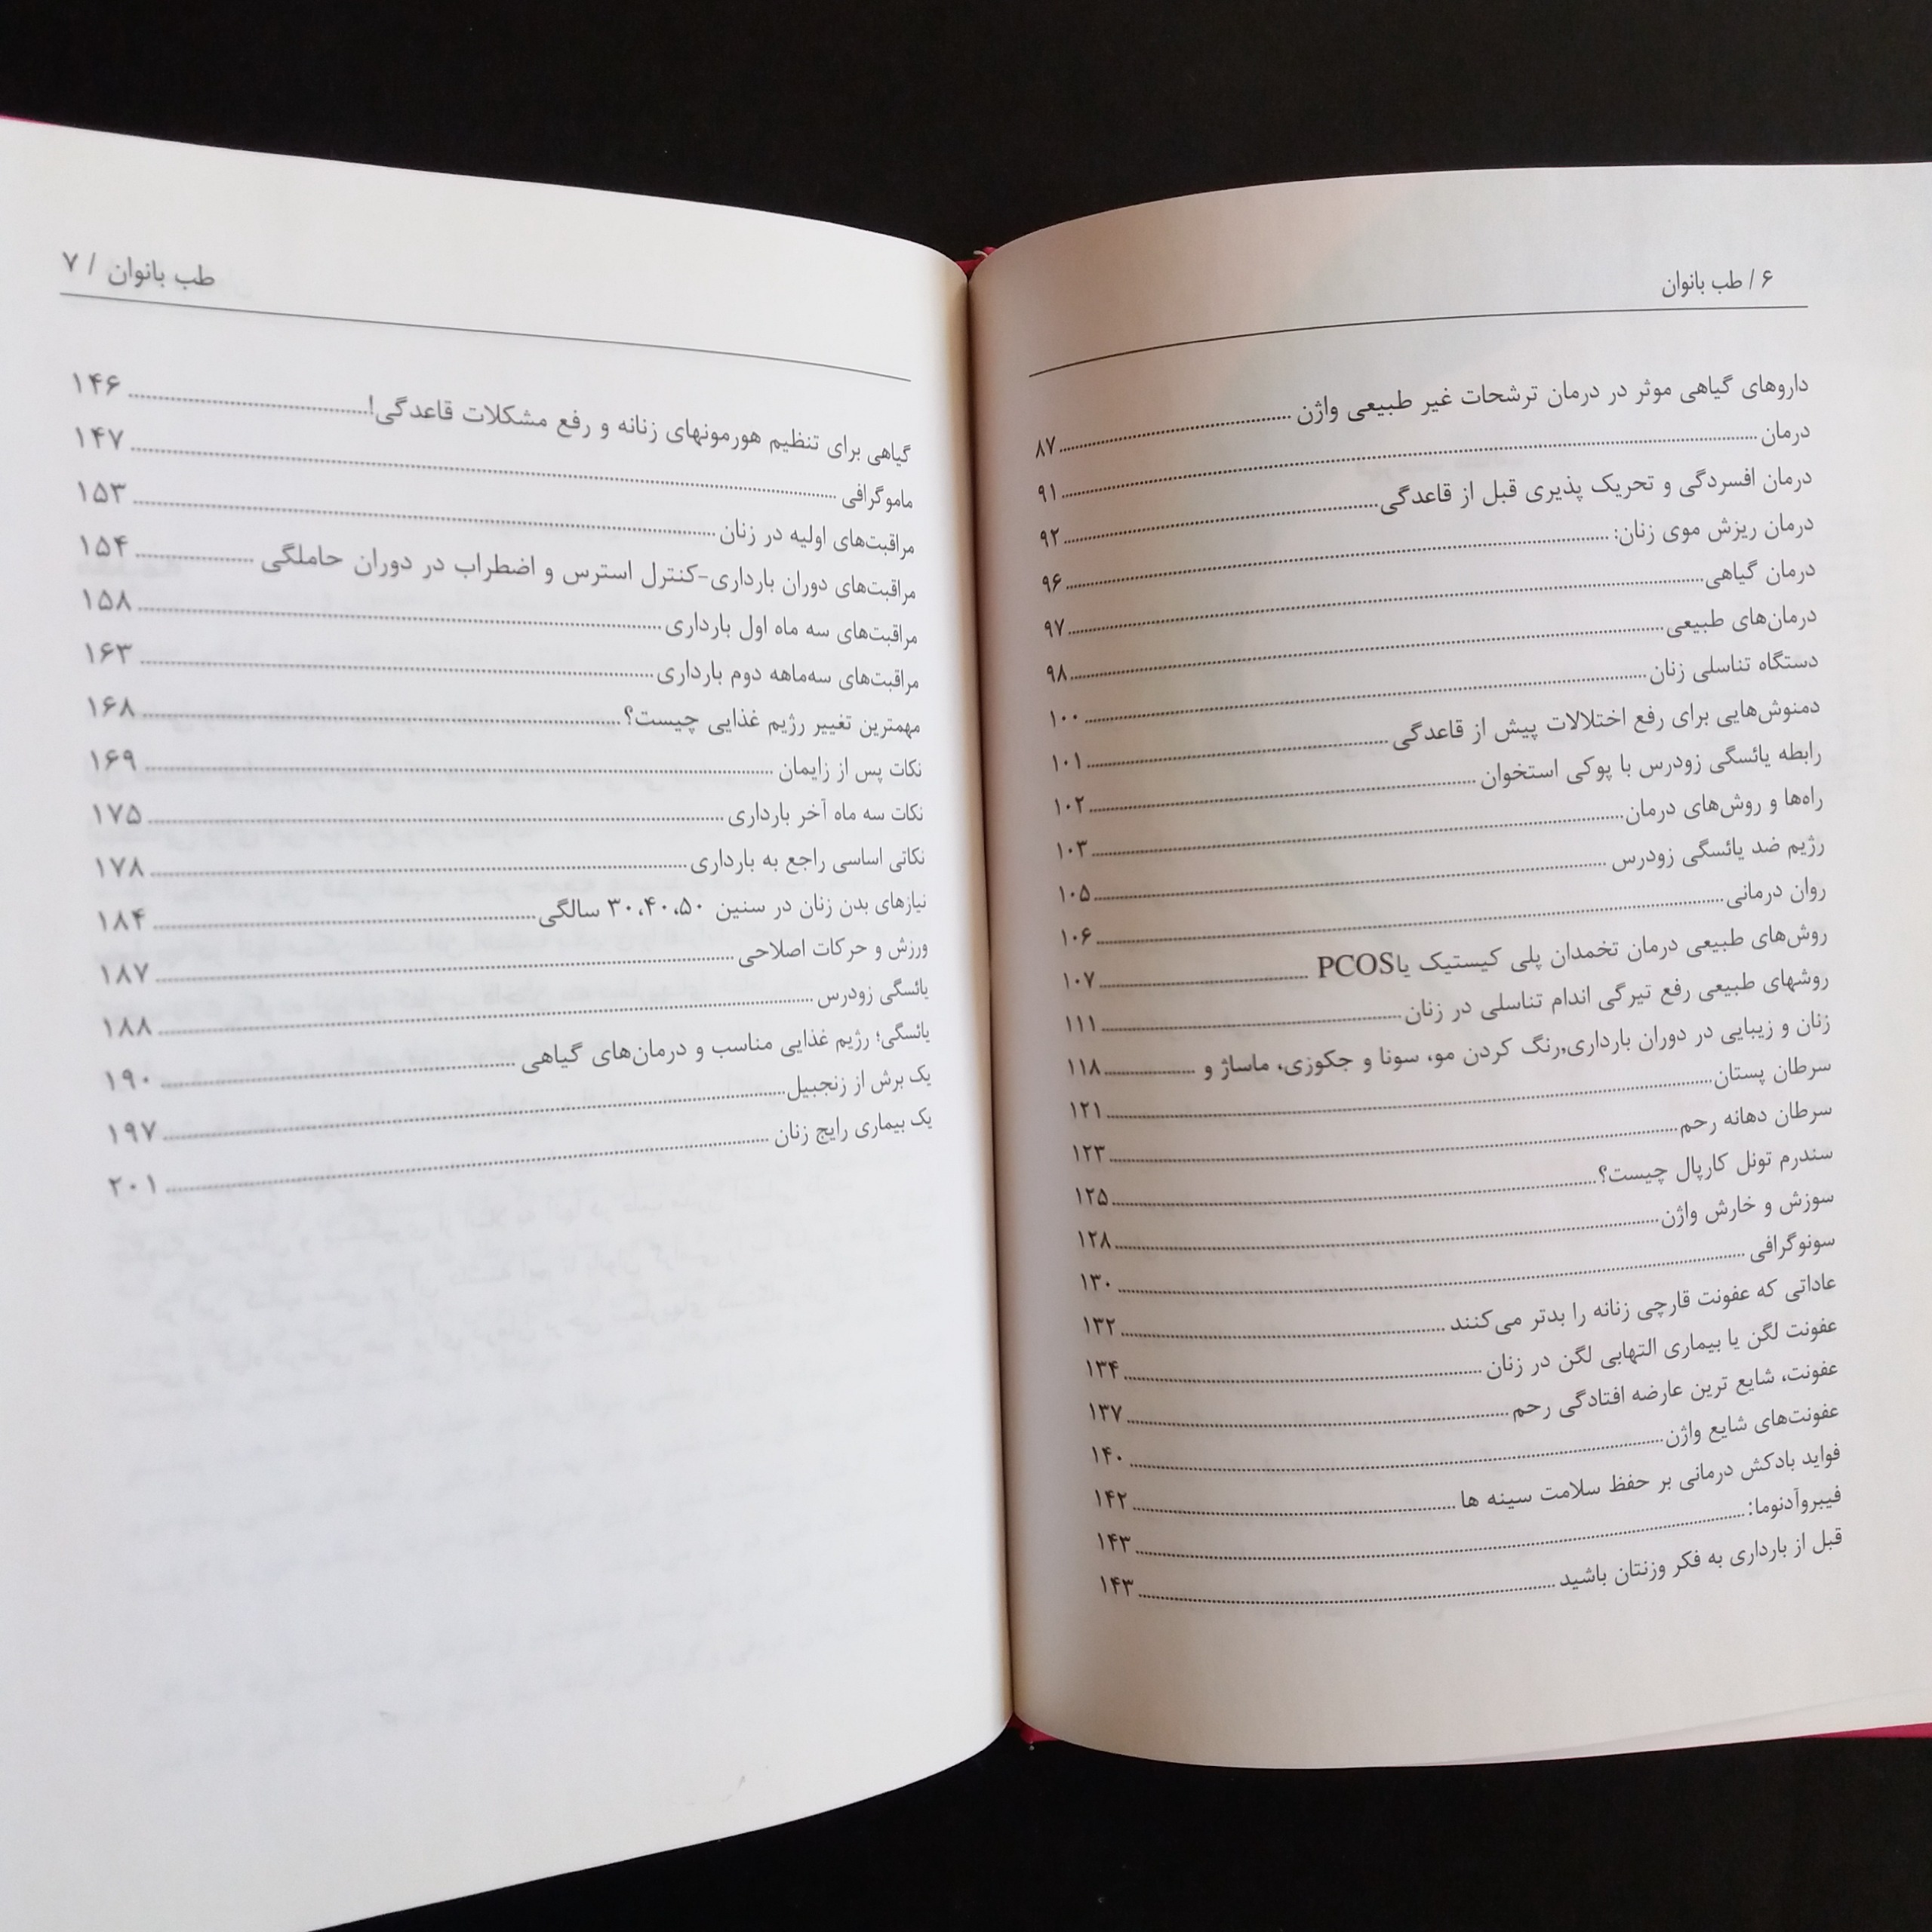 ۶ / طب بانوان
داروهای گیاهی موثر در درمان ترشحات غیر طبیعی واژن ........ ۸۷
درمان ........ ۹۱
درمان افسردگی و تحریک پذیری قبل از قاعدگی ........ ۹۲
درمان ریزش موی زنان: ........ ۹۶
درمان گیاهی ........ ۹۷
درمان‌های طبیعی ........ ۹۸
دستگاه تناسلی زنان ........ ۱۰۰
دمنوش‌هایی برای رفع اختلالات پیش از قاعدگی ........ ۱۰۱
رابطه یائسگی زودرس با پوکی استخوان ........ ۱۰۲
راه‌ها و روش‌های درمان ........ ۱۰۳
رژیم ضد یائسگی زودرس ........ ۱۰۵
روان درمانی ........ ۱۰۶
روش‌های طبیعی درمان تخمدان پلی کیستیک یا PCOS ........ ۱۰۷
روشهای طبیعی رفع تیرگی اندام تناسلی در زنان ........ ۱۱۱
زنان و زیبایی در دوران بارداری,رنگ کردن مو، سونا و جکوزی، ماساژ و ........ ۱۱۸
سرطان پستان ........ ۱۲۱
سرطان دهانه رحم ........ ۱۲۳
سندرم تونل کارپال چیست؟ ........ ۱۲۵
سوزش و خارش واژن ........ ۱۲۸
سونوگرافی ........ ۱۳۰
عاداتی که عفونت قارچی زنانه را بدتر می‌کنند ........ ۱۳۲
عفونت لگن یا بیماری التهابی لگن در زنان ........ ۱۳۴
عفونت، شایع ترین عارضه افتادگی رحم ........ ۱۳۷
عفونت‌های شایع واژن ........ ۱۴۰
فواید بادکش درمانی بر حفظ سلامت سینه ها ........ ۱۴۲
فیبروآدنوما: ........ ۱۴۳
قبل از بارداری به فکر وزنتان باشید ........ ۱۴۳
طب بانوان / ۷
گیاهی برای تنظیم هورمونهای زنانه و رفع مشکلات قاعدگی! ........ ۱۴۶
ماموگرافی ........ ۱۴۷
مراقبت‌های اولیه در زنان ........ ۱۵۳
مراقبت‌های دوران بارداری-کنترل استرس و اضطراب در دوران حاملگی ........ ۱۵۴
مراقبت‌های سه ماه اول بارداری ........ ۱۵۸
مراقبت‌های سه‌ماهه دوم بارداری ........ ۱۶۳
مهمترین تغییر رژیم غذایی چیست؟ ........ ۱۶۸
نکات پس از زایمان ........ ۱۶۹
نکات سه ماه آخر بارداری ........ ۱۷۵
نکاتی اساسی راجع به بارداری ........ ۱۷۸
نیازهای بدن زنان در سنین ۳۰،۴۰،۵۰ سالگی ........ ۱۸۴
ورزش و حرکات اصلاحی ........ ۱۸۷
یائسگی زودرس ........ ۱۸۸
یائسگی؛ رژیم غذایی مناسب و درمان‌های گیاهی ........ ۱۹۰
یک برش از زنجبیل ........ ۱۹۷
یک بیماری رایج زنان ........ ۲۰۱